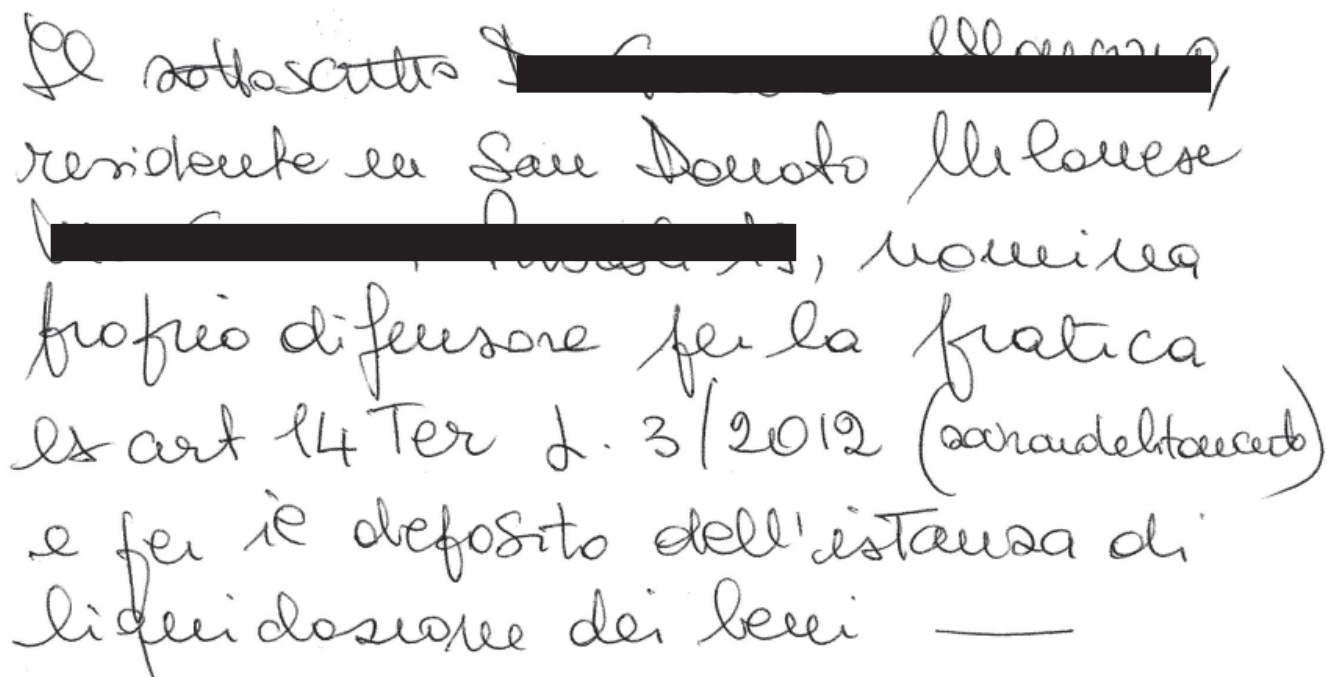 Il sottoscritto
residente in San Donato Milanese
, nomina
proprio difensore per la pratica
ex art 14 Ter L. 3/2012 (sovraindebitamento)
e per il deposito dell'istanza di
liquidazione dei beni —